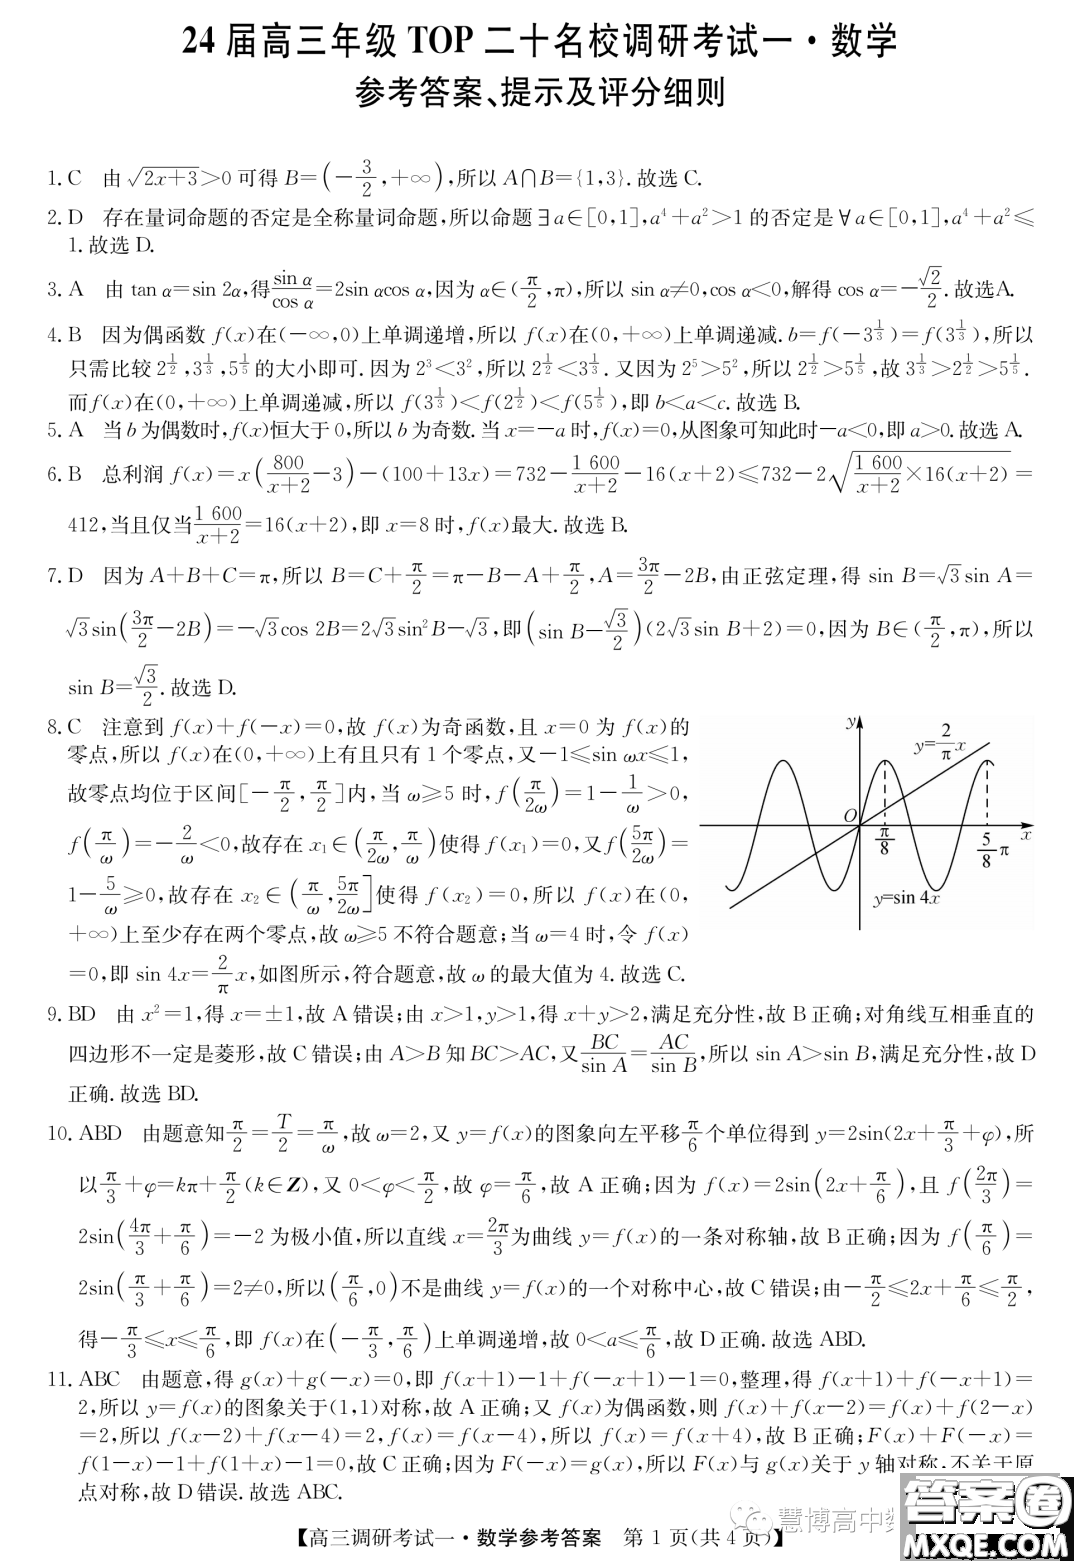 24 届高三年级 TOP 二十名校调研考试一·数学
参考答案、提示及评分细则
1. C 由 √(2x+3)>0 可得 B=(-3/2,+∞),所以 A∩B={1,3}. 故选 C.
2. D 存在量词命题的否定是全称量词命题,所以命题∃a∈[0,1],a⁴+a²>1 的否定是∀a∈[0,1],a⁴+a²≤
1. 故选 D.
3. A 由 tan α=sin 2α,得 sin α/cos α=2sin αcos α,因为 α∈(π/2,π),所以 sin α≠0,cos α<0,解得 cos α=-√2/2. 故选A.
4. B 因为偶函数 f(x)在(-∞,0)上单调递增,所以 f(x)在(0,+∞)上单调递减. b=f(-3^(1/3))=f(3^(1/3)),所以
只需比较 2^(1/2),3^(1/3),5^(1/5)的大小即可. 因为 2³<3²,所以 2^(1/2)<3^(1/3). 又因为 2⁵>5²,所以 2^(1/2)>5^(1/5),故 3^(1/3)>2^(1/2)>5^(1/5).
而f(x)在(0,+∞)上单调递减,所以 f(3^(1/3))<f(2^(1/2))<f(5^(1/5)),即 b<a<c. 故选 B.
5. A 当 b 为偶数时,f(x)恒大于 0,所以 b 为奇数. 当 x=-a 时,f(x)=0,从图象可知此时-a<0,即 a>0. 故选 A.
6. B 总利润 f(x)=x(800/(x+2)-3)-(100+13x)=732-1 600/(x+2)-16(x+2)≤732-2√(1 600/(x+2)×16(x+2))=
412,当且仅当 1 600/(x+2)=16(x+2),即 x=8 时,f(x)最大. 故选 B.
7. D 因为 A+B+C=π,所以 B=C+π/2=π-B-A+π/2,A=3π/2-2B,由正弦定理,得 sin B=√3 sin A=
√3 sin(3π/2-2B)=-√3 cos 2B=2√3 sin²B-√3,即(sin B-√3/2)(2√3 sin B+2)=0,因为 B∈(π/2,π),所以
sin B=√3/2. 故选 D.
8. C 注意到 f(x)+f(-x)=0,故 f(x)为奇函数,且 x=0 为 f(x)的
零点,所以 f(x)在(0,+∞)上有且只有 1 个零点,又-1≤sin ωx≤1,
故零点均位于区间[-π/2,π/2]内,当 ω≥5 时,f(π/2ω)=1-1/ω>0,
f(π/ω)=-2/ω<0,故存在 x₁∈(π/2ω,π/ω)使得 f(x₁)=0,又f(5π/2ω)=
1-5/ω≥0,故存在 x₂∈(π/ω,5π/2ω]使得 f(x₂)=0,所以 f(x)在(0,
+∞)上至少存在两个零点,故 ω≥5 不符合题意;当 ω=4 时,令 f(x)
=0,即 sin 4x=2/π x,如图所示,符合题意,故 ω 的最大值为 4. 故选 C.
y
y=2/π x
O
π/8
5/8 π
x
y=sin 4x
9. BD 由 x²=1,得 x=±1,故 A 错误;由 x>1,y>1,得 x+y>2,满足充分性,故 B 正确;对角线互相垂直的
四边形不一定是菱形,故 C 错误;由 A>B 知 BC>AC,又 BC/sin A=AC/sin B,所以 sin A>sin B,满足充分性,故 D
正确. 故选 BD.
10. ABD 由题意知 π/2=T/2=π/ω,故 ω=2,又 y=f(x)的图象向左平移 π/6 个单位得到 y=2sin(2x+π/3+φ),所
以 π/3+φ=kπ+π/2(k∈Z),又 0<φ<π/2,故 φ=π/6,故 A 正确;因为 f(x)=2sin(2x+π/6),且 f(2π/3)=
2sin(4π/3+π/6)=-2 为极小值,所以直线 x=2π/3为曲线 y=f(x)的一条对称轴,故 B 正确;因为 f(π/6)=
2sin(π/3+π/6)=2≠0,所以(π/6,0)不是曲线 y=f(x)的一个对称中心,故 C 错误;由-π/2≤2x+π/6≤π/2,
得-π/3≤x≤π/6,即 f(x)在(-π/3,π/6)上单调递增,故 0<a≤π/6,故 D 正确. 故选 ABD.
11. ABC 由题意,得 g(x)+g(-x)=0,即 f(x+1)-1+f(-x+1)-1=0,整理,得 f(x+1)+f(-x+1)=
2,所以 y=f(x)的图象关于(1,1)对称,故 A 正确;又 f(x)为偶函数,则 f(x)+f(x-2)=f(x)+f(2-x)
=2,所以 f(x-2)+f(x-4)=2,f(x)=f(x-4),所以 f(x)=f(x+4),故 B 正确;F(x)+F(-x)=
f(1-x)-1+f(1+x)-1=0,故 C 正确;因为 F(-x)=g(x),所以 F(x)与 g(x)关于 y 轴对称,不关于原
点对称,故 D 错误. 故选 ABC.
【高三调研考试一·数学参考答案 第 1 页(共 4 页)】
慧博高中
答案圈
MXQE.COM